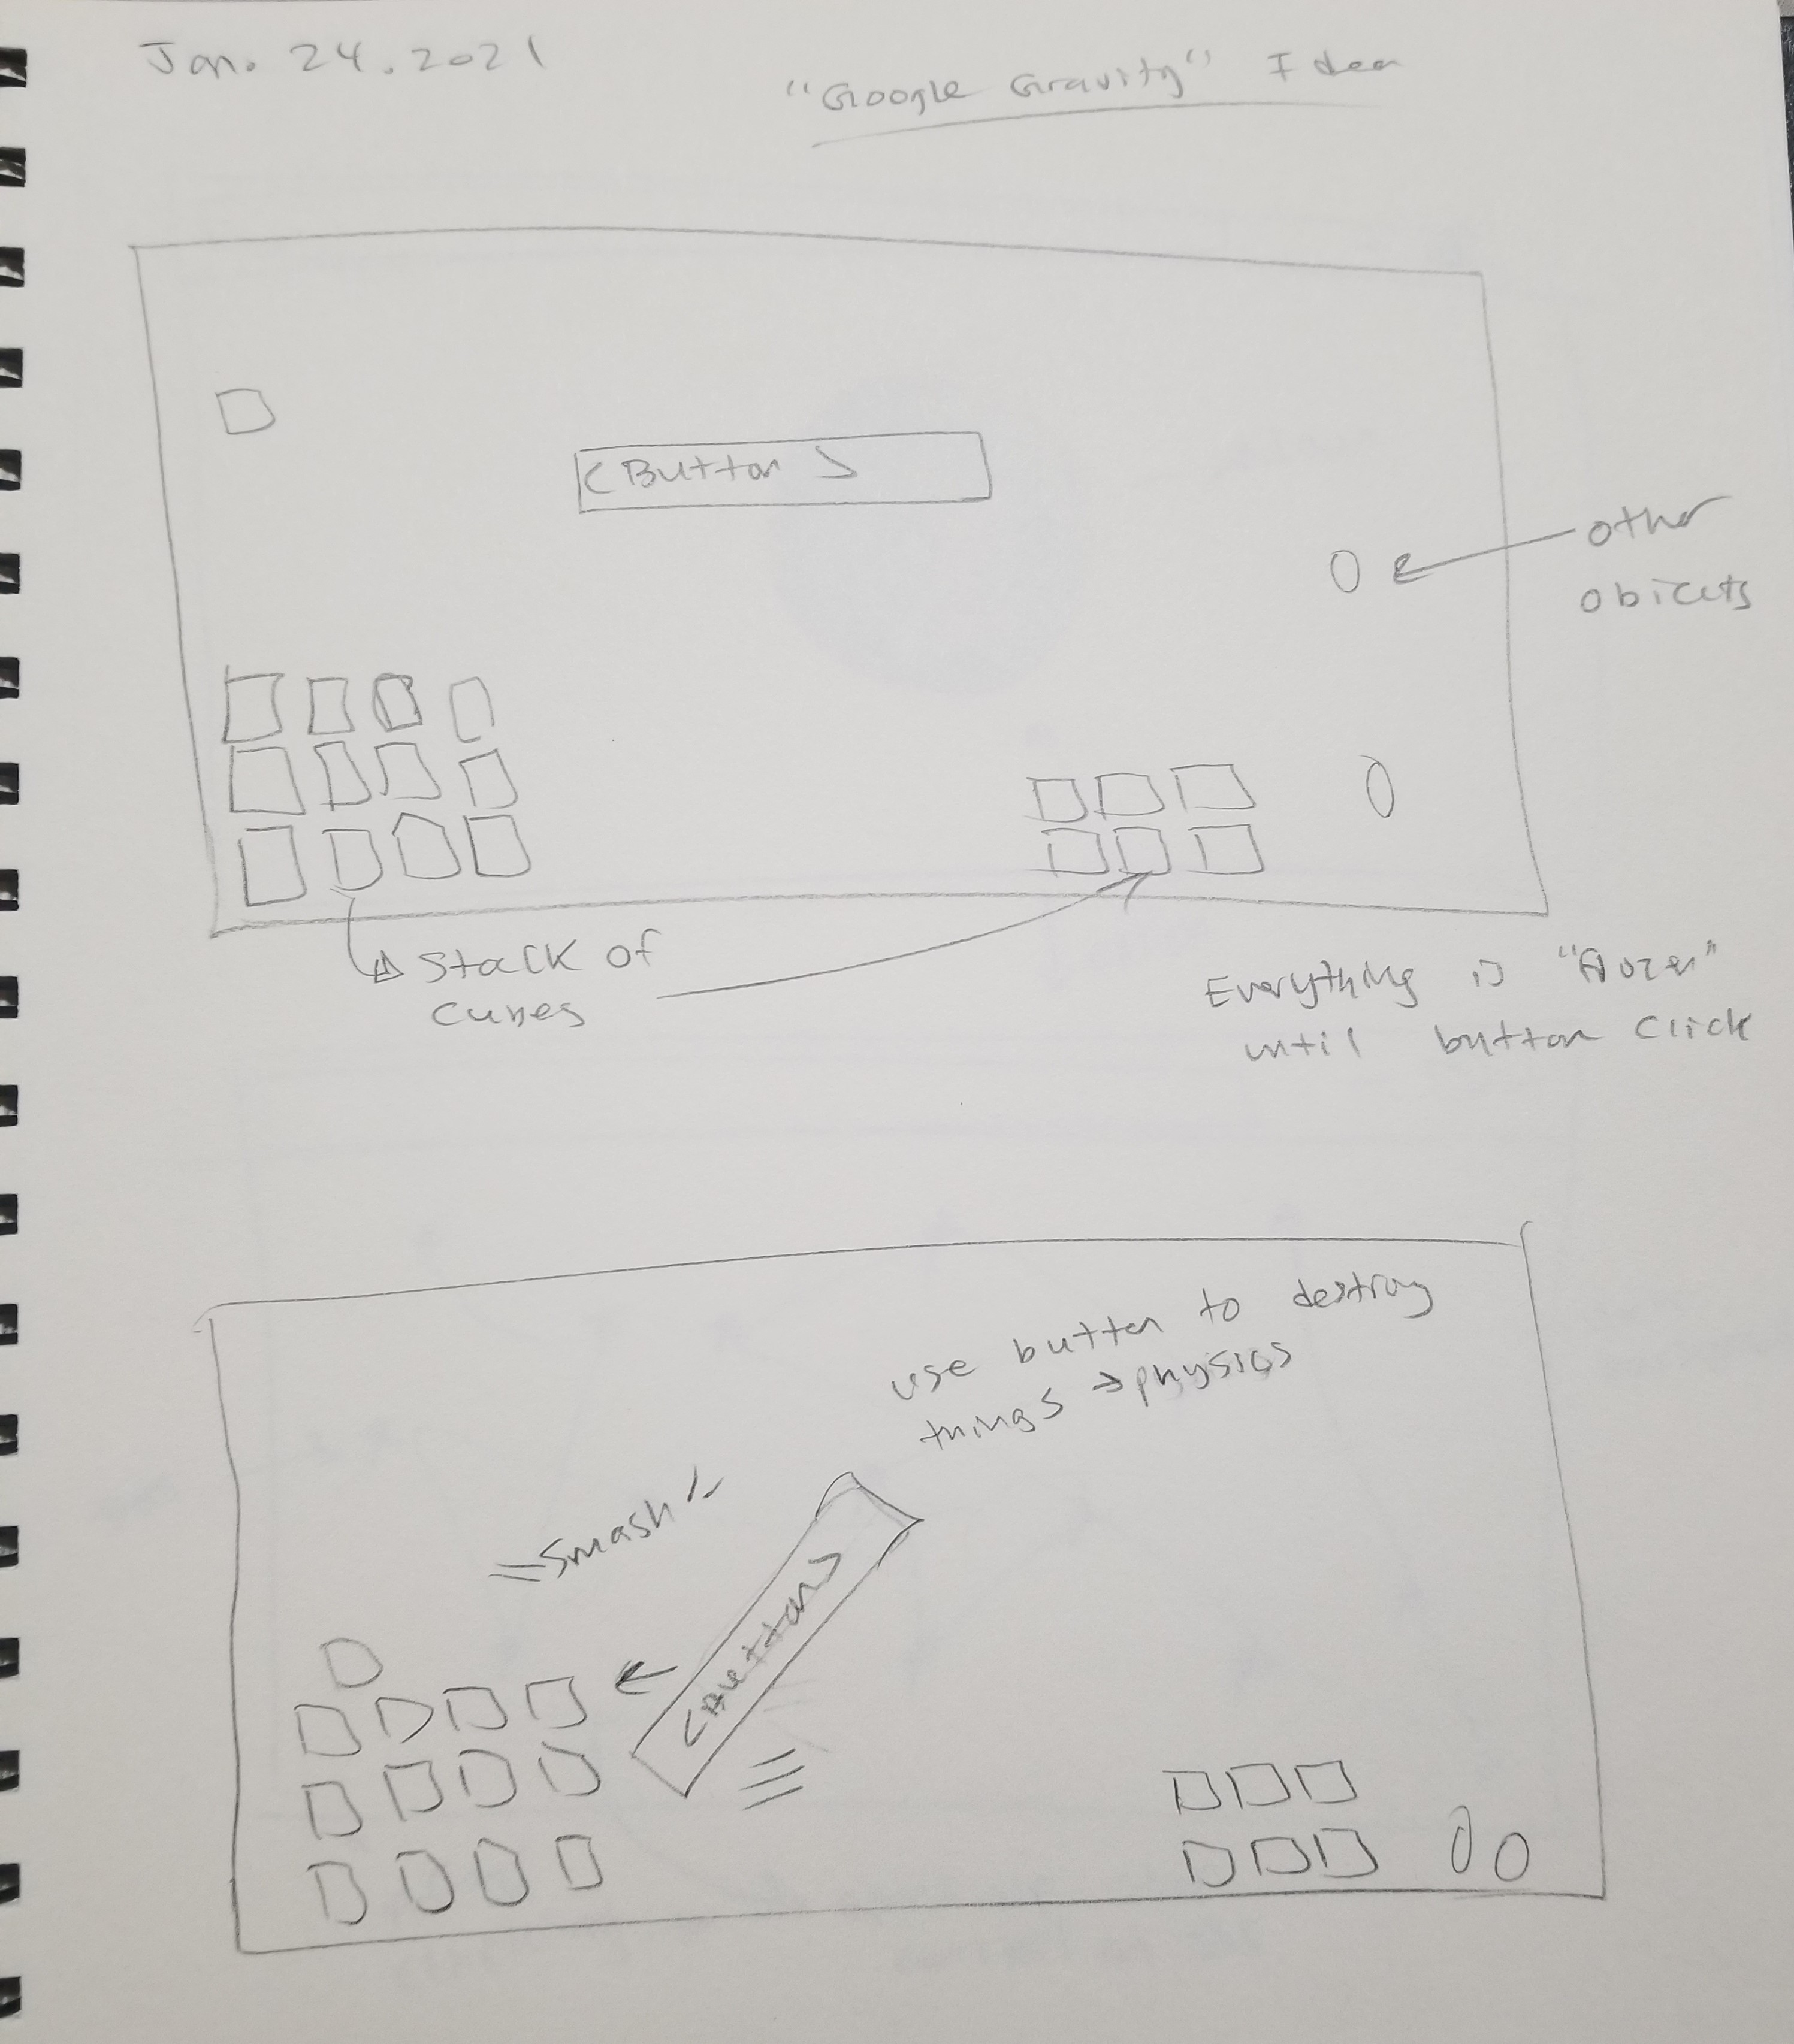 Jan. 24. 2021
"Google Gravity" Idea
<Button>
other
objects
Stack of
cubes
Everything is "frozen"
until button click
use button to destroy
things → physics
Smash
<Button>